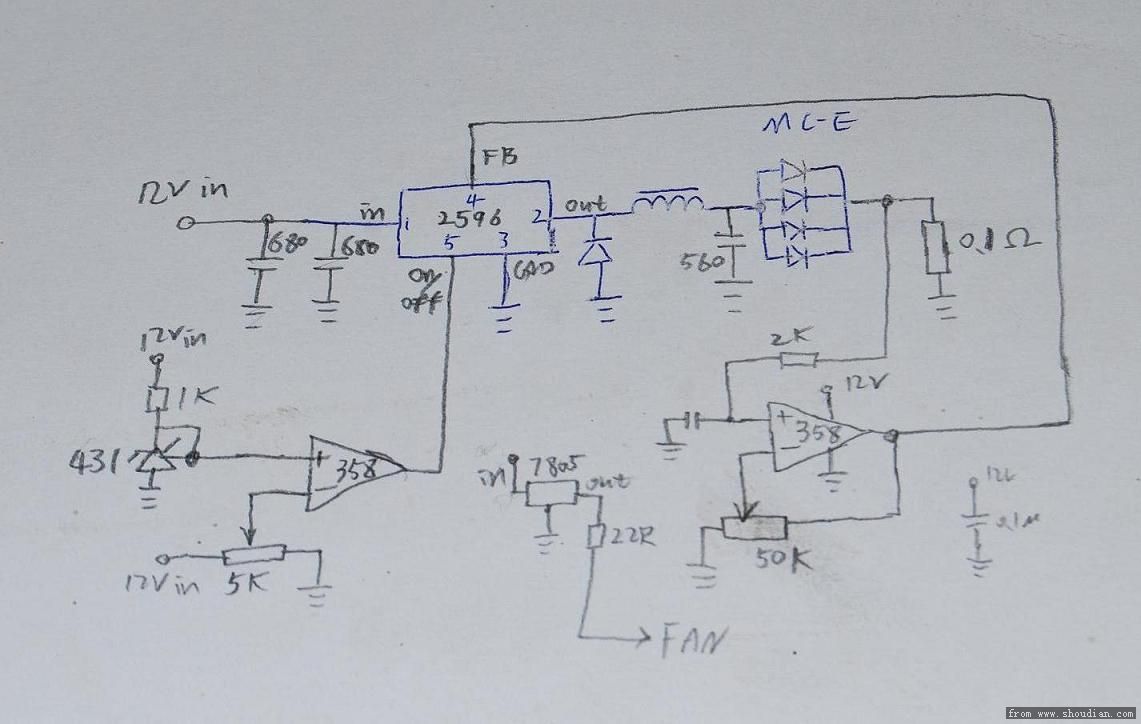 MC-E
FB
12V in
in
1
4
2596
2
out
5
3
680
680
on/off
GND
560
0.1Ω
12Vin
1K
431
+
358
-
12Vin
5K
in
7805
out
22R
FAN
2K
12V
+
358
-
50K
12V
0.1M
from www.shoudian.com